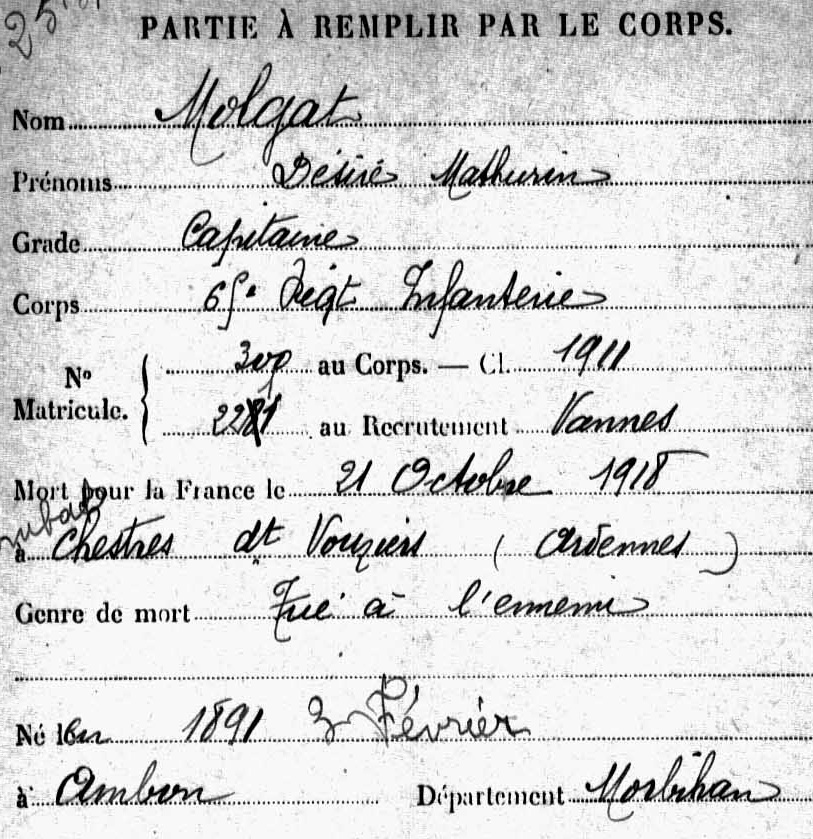 25
PARTIE À REMPLIR PAR LE CORPS.
Nom Molgat
Prénoms Désiré Mathurin
Grade Capitaine
Corps 65e Régt Infanterie
No Matricule. 307 au Corps. — Cl. 1911
2281 au Recrutement Vannes
Mort pour la France le 21 Octobre 1918
à Chestres dt Vouziers (Ardennes)
Genre de mort Tué à l'ennemi
Né en 1891 3 Février
à Ambon Département Morbihan